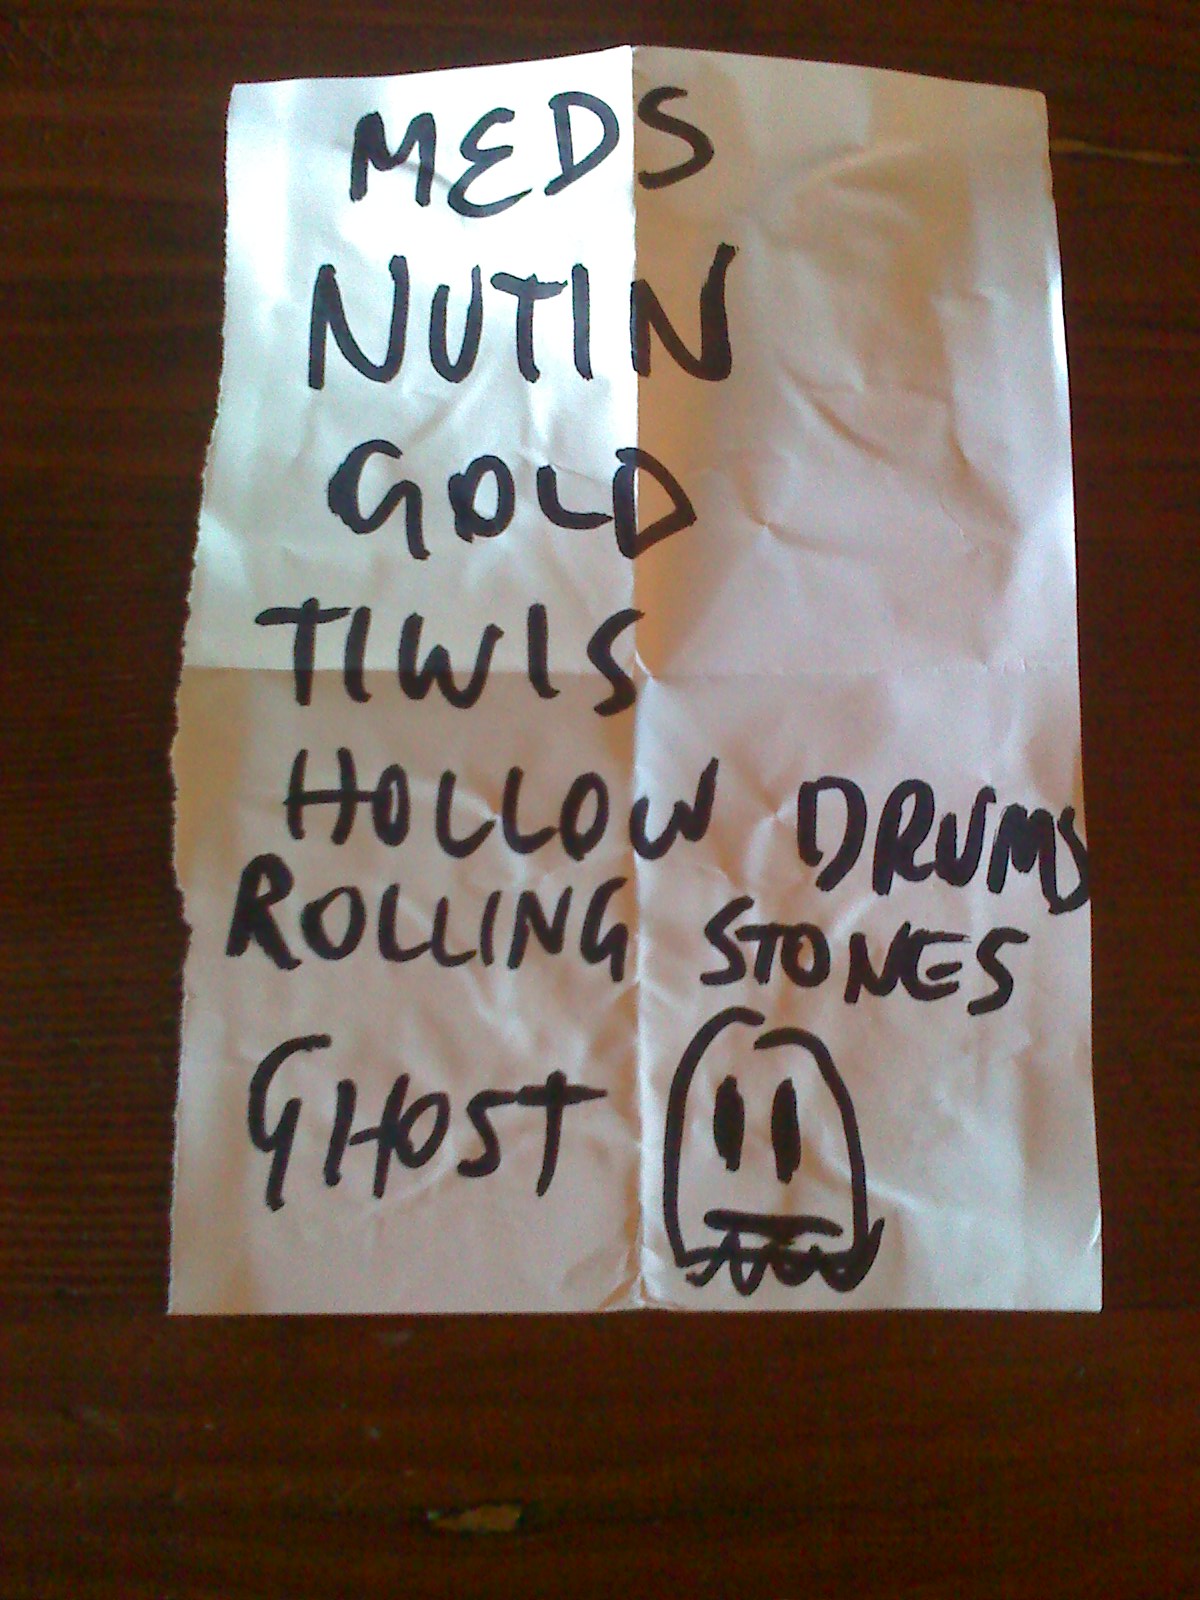 MEDS
NUTIN
GOLD
TIWIS
HOLLOW DRUMS
ROLLING STONES
GHOST